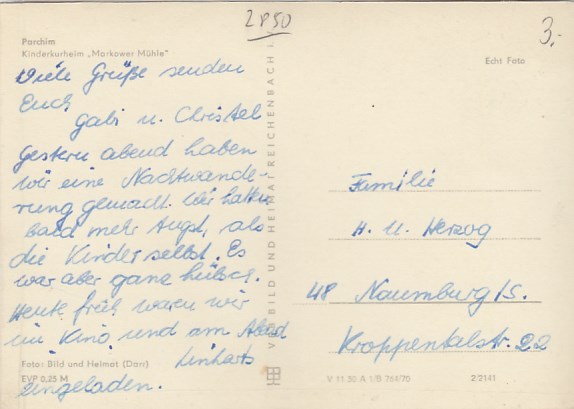 2850
3.-
Parchim
Kinderkurheim „Markower Mühle"
Echt Foto
Viele Grüße senden
Euch
Gabi u. Christel
Gestern abend haben
wir eine Nachtwande-
rung gemacht. Wir hatten
bald mehr Angst, als
die Kinder selbst. Es
war aber ganz hübsch.
Heute früh waren wir
im Kino und am Abend
Linharts
eingeladen.
Foto: Bild und Heimat (Darr)
EVP 0,25 M
BILD UND HEIMAT REICHENBACH i.
Familie
H. U. Herzog
48 Naumburg/S.
Kroppentalstr. 22
V 11 50 A 1/B 761/70
2/2141